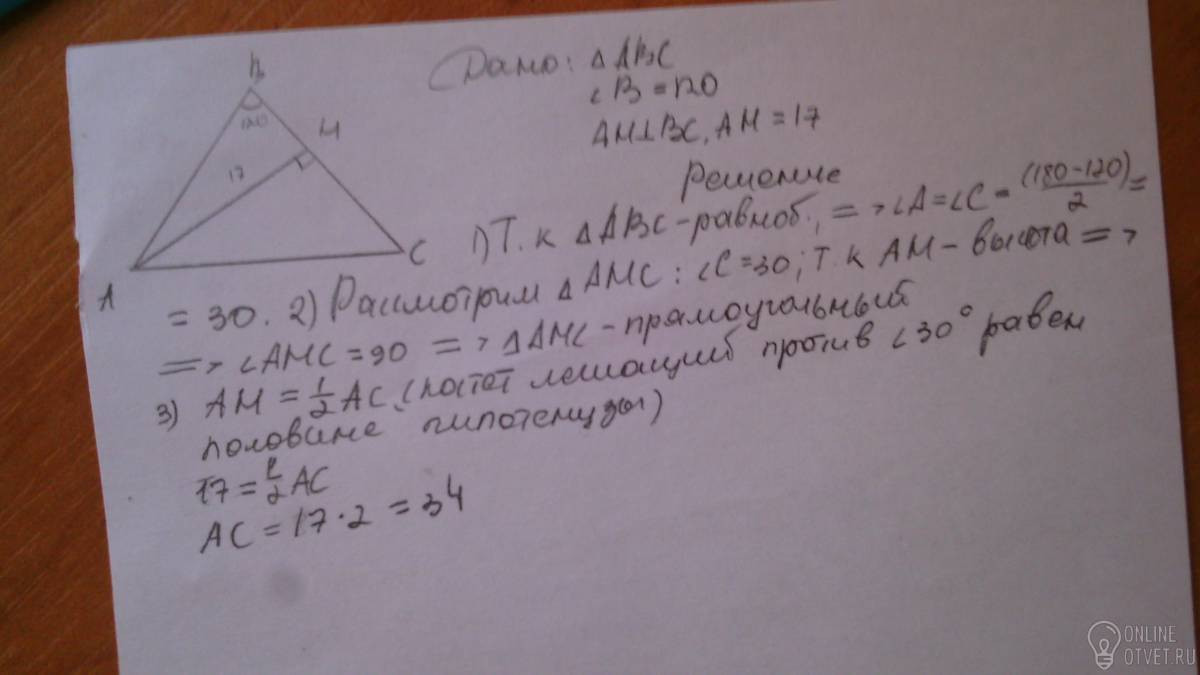 B
120
M
17
A
C
Дано: △ABC
∠B = 120
AM⊥BC, AM = 17
Решение
1) Т.к △ABC - равноб., => ∠A = ∠C = (180-120)/2 =
= 30. 2) Рассмотрим △AMC: ∠C = 30; Т.к AM - высота =>
=> ∠AMC = 90 => △AMC - прямоугольный
3) AM = 1/2 AC (катет лежащий против ∠30° равен
половине гипотенузы)
17 = 1/2 AC
AC = 17·2 = 34
ONLINE
OTVET.RU